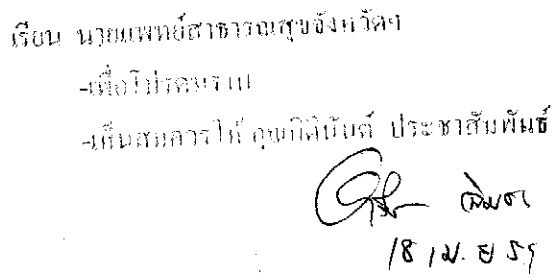 เรียน นายแพทย์สาธารณสุขจังหวัดฯ
-เพื่อโปรดทราบ
-เห็นสมควรให้ คุณกิตินันต์ ประชาสัมพันธ์
18 เม.ย 51